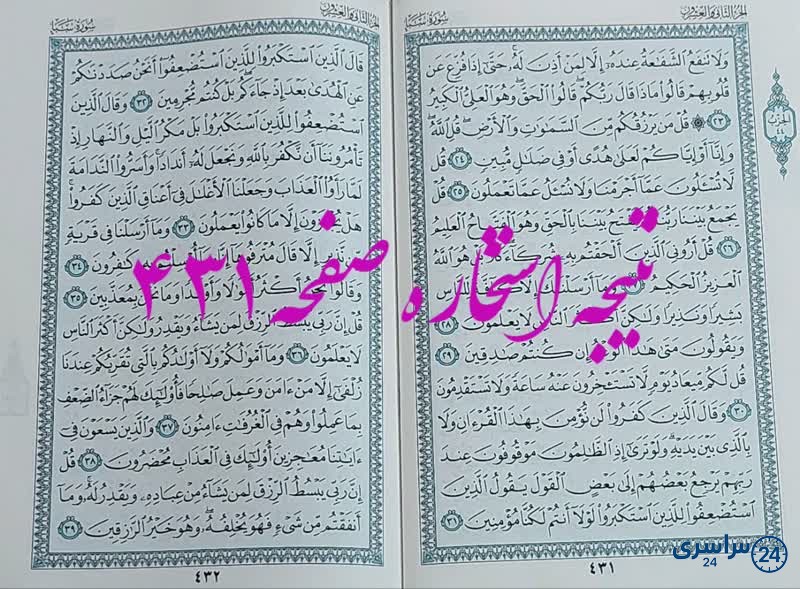 الجزء الثاني والعشرون
سورة سبأ
وَلَا تَنفَعُ الشَّفَاعَةُ عِندَهُ إِلَّا لِمَنْ أَذِنَ لَهُ حَتَّىٰ إِذَا فُزِّعَ عَن
قُلُوبِهِمْ قَالُوا مَاذَا قَالَ رَبُّكُمْ قَالُوا الْحَقَّ وَهُوَ الْعَلِيُّ الْكَبِيرُ
٢٣ ۞ قُلْ مَن يَرْزُقُكُم مِّنَ السَّمَاوَاتِ وَالْأَرْضِ قُلِ اللَّهُ
وَإِنَّا أَوْ إِيَّاكُمْ لَعَلَىٰ هُدًى أَوْ فِي ضَلَالٍ مُّبِينٍ ٢٤ قُل
لَّا تُسْأَلُونَ عَمَّا أَجْرَمْنَا وَلَا نُسْأَلُ عَمَّا تَعْمَلُونَ ٢٥ قُلْ
يَجْمَعُ بَيْنَنَا رَبُّنَا بَيْنَنَا بِالْحَقِّ وَهُوَ الْفَتَّاحُ الْعَلِيمُ
٢٦ قُلْ أَرُونِيَ الَّذِينَ أَلْحَقْتُم بِهِ هُوَ اللَّهُ
الْعَزِيزُ الْحَكِيمُ ٢٧ وَمَا أَرْسَلْنَاكَ إِلَّا كَافَّةً لِّلنَّاسِ
بَشِيرًا وَنَذِيرًا وَلَٰكِنَّ أَكْثَرَ النَّاسِ لَا يَعْلَمُونَ ٢٨
وَيَقُولُونَ مَتَىٰ هَٰذَا الْوَعْدُ إِن كُنتُمْ صَادِقِينَ ٢٩
قُل لَّكُم مِّيعَادُ يَوْمٍ لَّا تَسْتَأْخِرُونَ عَنْهُ سَاعَةً وَلَا تَسْتَقْدِمُونَ
٣٠ وَقَالَ الَّذِينَ كَفَرُوا لَن نُّؤْمِنَ بِهَٰذَا الْقُرْآنِ وَلَا
بِالَّذِي بَيْنَ يَدَيْهِ وَلَوْ تَرَىٰ إِذِ الظَّالِمُونَ مَوْقُوفُونَ عِندَ
رَبِّهِمْ يَرْجِعُ بَعْضُهُمْ إِلَىٰ بَعْضٍ الْقَوْلَ يَقُولُ الَّذِينَ
اسْتُضْعِفُوا لِلَّذِينَ اسْتَكْبَرُوا لَوْلَا أَنتُمْ لَكُنَّا مُؤْمِنِينَ ٣١
٤٣١
الحزب
٤٤
الجزء الثاني والعشرون
سورة سبأ
قَالَ الَّذِينَ اسْتَكْبَرُوا لِلَّذِينَ اسْتُضْعِفُوا أَنَحْنُ صَدَدْنَاكُمْ
عَنِ الْهُدَىٰ بَعْدَ إِذْ جَاءَكُم بَلْ كُنتُم مُّجْرِمِينَ ٣٢ وَقَالَ الَّذِينَ
اسْتُضْعِفُوا لِلَّذِينَ اسْتَكْبَرُوا بَلْ مَكْرُ اللَّيْلِ وَالنَّهَارِ إِذْ
تَأْمُرُونَنَا أَن نَّكْفُرَ بِاللَّهِ وَنَجْعَلَ لَهُ أَندَادًا وَأَسَرُّوا النَّدَامَةَ
لَمَّا رَأَوُا الْعَذَابَ وَجَعَلْنَا الْأَغْلَالَ فِي أَعْنَاقِ الَّذِينَ كَفَرُوا
هَلْ يُجْزَوْنَ إِلَّا مَا كَانُوا يَعْمَلُونَ ٣٣ وَمَا أَرْسَلْنَا فِي قَرْيَةٍ
مِّن نَّذِيرٍ إِلَّا قَالَ مُتْرَفُوهَا إِنَّا بِمَا أُرْسِلْتُم بِهِ كَافِرُونَ ٣٤
وَقَالُوا نَحْنُ أَكْثَرُ أَمْوَالًا وَأَوْلَادًا وَمَا نَحْنُ بِمُعَذَّبِينَ ٣٥
قُلْ إِنَّ رَبِّي يَبْسُطُ الرِّزْقَ لِمَن يَشَاءُ وَيَقْدِرُ وَلَٰكِنَّ أَكْثَرَ النَّاسِ
لَا يَعْلَمُونَ ٣٦ وَمَا أَمْوَالُكُمْ وَلَا أَوْلَادُكُم بِالَّتِي تُقَرِّبُكُمْ عِندَنَا
زُلْفَىٰ إِلَّا مَنْ آمَنَ وَعَمِلَ صَالِحًا فَأُولَٰئِكَ لَهُمْ جَزَاءُ الضِّعْفِ
بِمَا عَمِلُوا وَهُمْ فِي الْغُرُفَاتِ آمِنُونَ ٣٧ وَالَّذِينَ يَسْعَوْنَ فِي
آيَاتِنَا مُعَاجِزِينَ أُولَٰئِكَ فِي الْعَذَابِ مُحْضَرُونَ ٣٨ قُلْ
إِنَّ رَبِّي يَبْسُطُ الرِّزْقَ لِمَن يَشَاءُ مِنْ عِبَادِهِ وَيَقْدِرُ لَهُ وَمَا
أَنفَقْتُم مِّن شَيْءٍ فَهُوَ يُخْلِفُهُ وَهُوَ خَيْرُ الرَّازِقِينَ ٣٩
٤٣٢
نتیجه استخاره صفحه ۴۳۱
سراسری
24
24